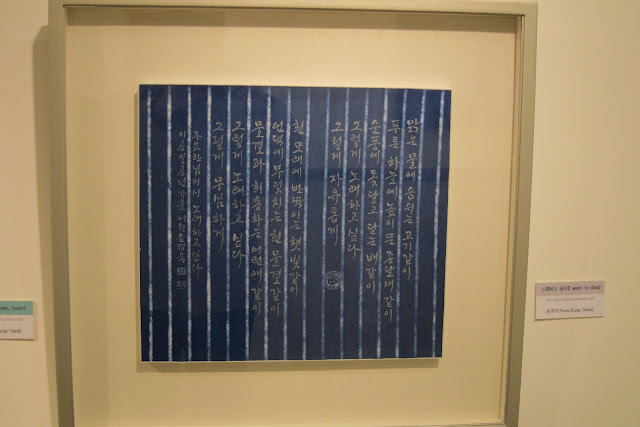 맑은 물에 숨쉬는 고기같이
푸른 하늘에 높이 뜬 종달새같이
순풍에 돛달고 닫는 배같이
그렇게 노래하고 싶다
그렇게 자유롭게
흰 모래에 반짝이는 햇빛같이
언덕에 부딪치는 흰 물결같이
물결과 희롱하는 어린애같이
그렇게 노래하고 싶다
그렇게 무심하게
주요한님의 시 노래하고싶다
이공일공년 가을
노래하고 싶다(I want to sing)